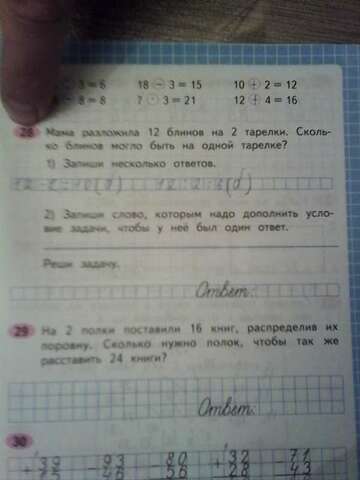 3 = 6 18 − 3 = 15 10 + 2 = 12
8 = 8 7 · 3 = 21 12 + 4 = 16
28 Мама разложила 12 блинов на 2 тарелки. Сколь-
ко блинов могло быть на одной тарелке?
1) Запиши несколько ответов.
12-2=10(д) 12:2=6(д)
2) Запиши слово, которым надо дополнить усло-
вие задачи, чтобы у неё был один ответ.
Реши задачу.
Ответ:
29 На 2 полки поставили 16 книг, распределив их
поровну. Сколько нужно полок, чтобы так же
расставить 24 книги?
Ответ:
30
+39 −93 −80 +32 −71
46 56 28 43